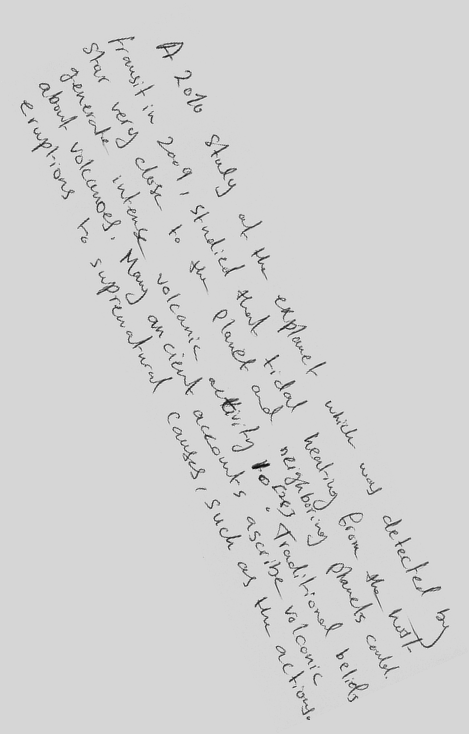 A 2010 study of the explanet which was detected by
transit in 2009, studied that tidal heating from the host
star very close to the planet and neighboring planets could.
generate intense volcanic activity Traditional beliefs
about volcanoes. Many ancient accounts ascribe volcanic
eruptions to suprenatural causes, such as the actions.